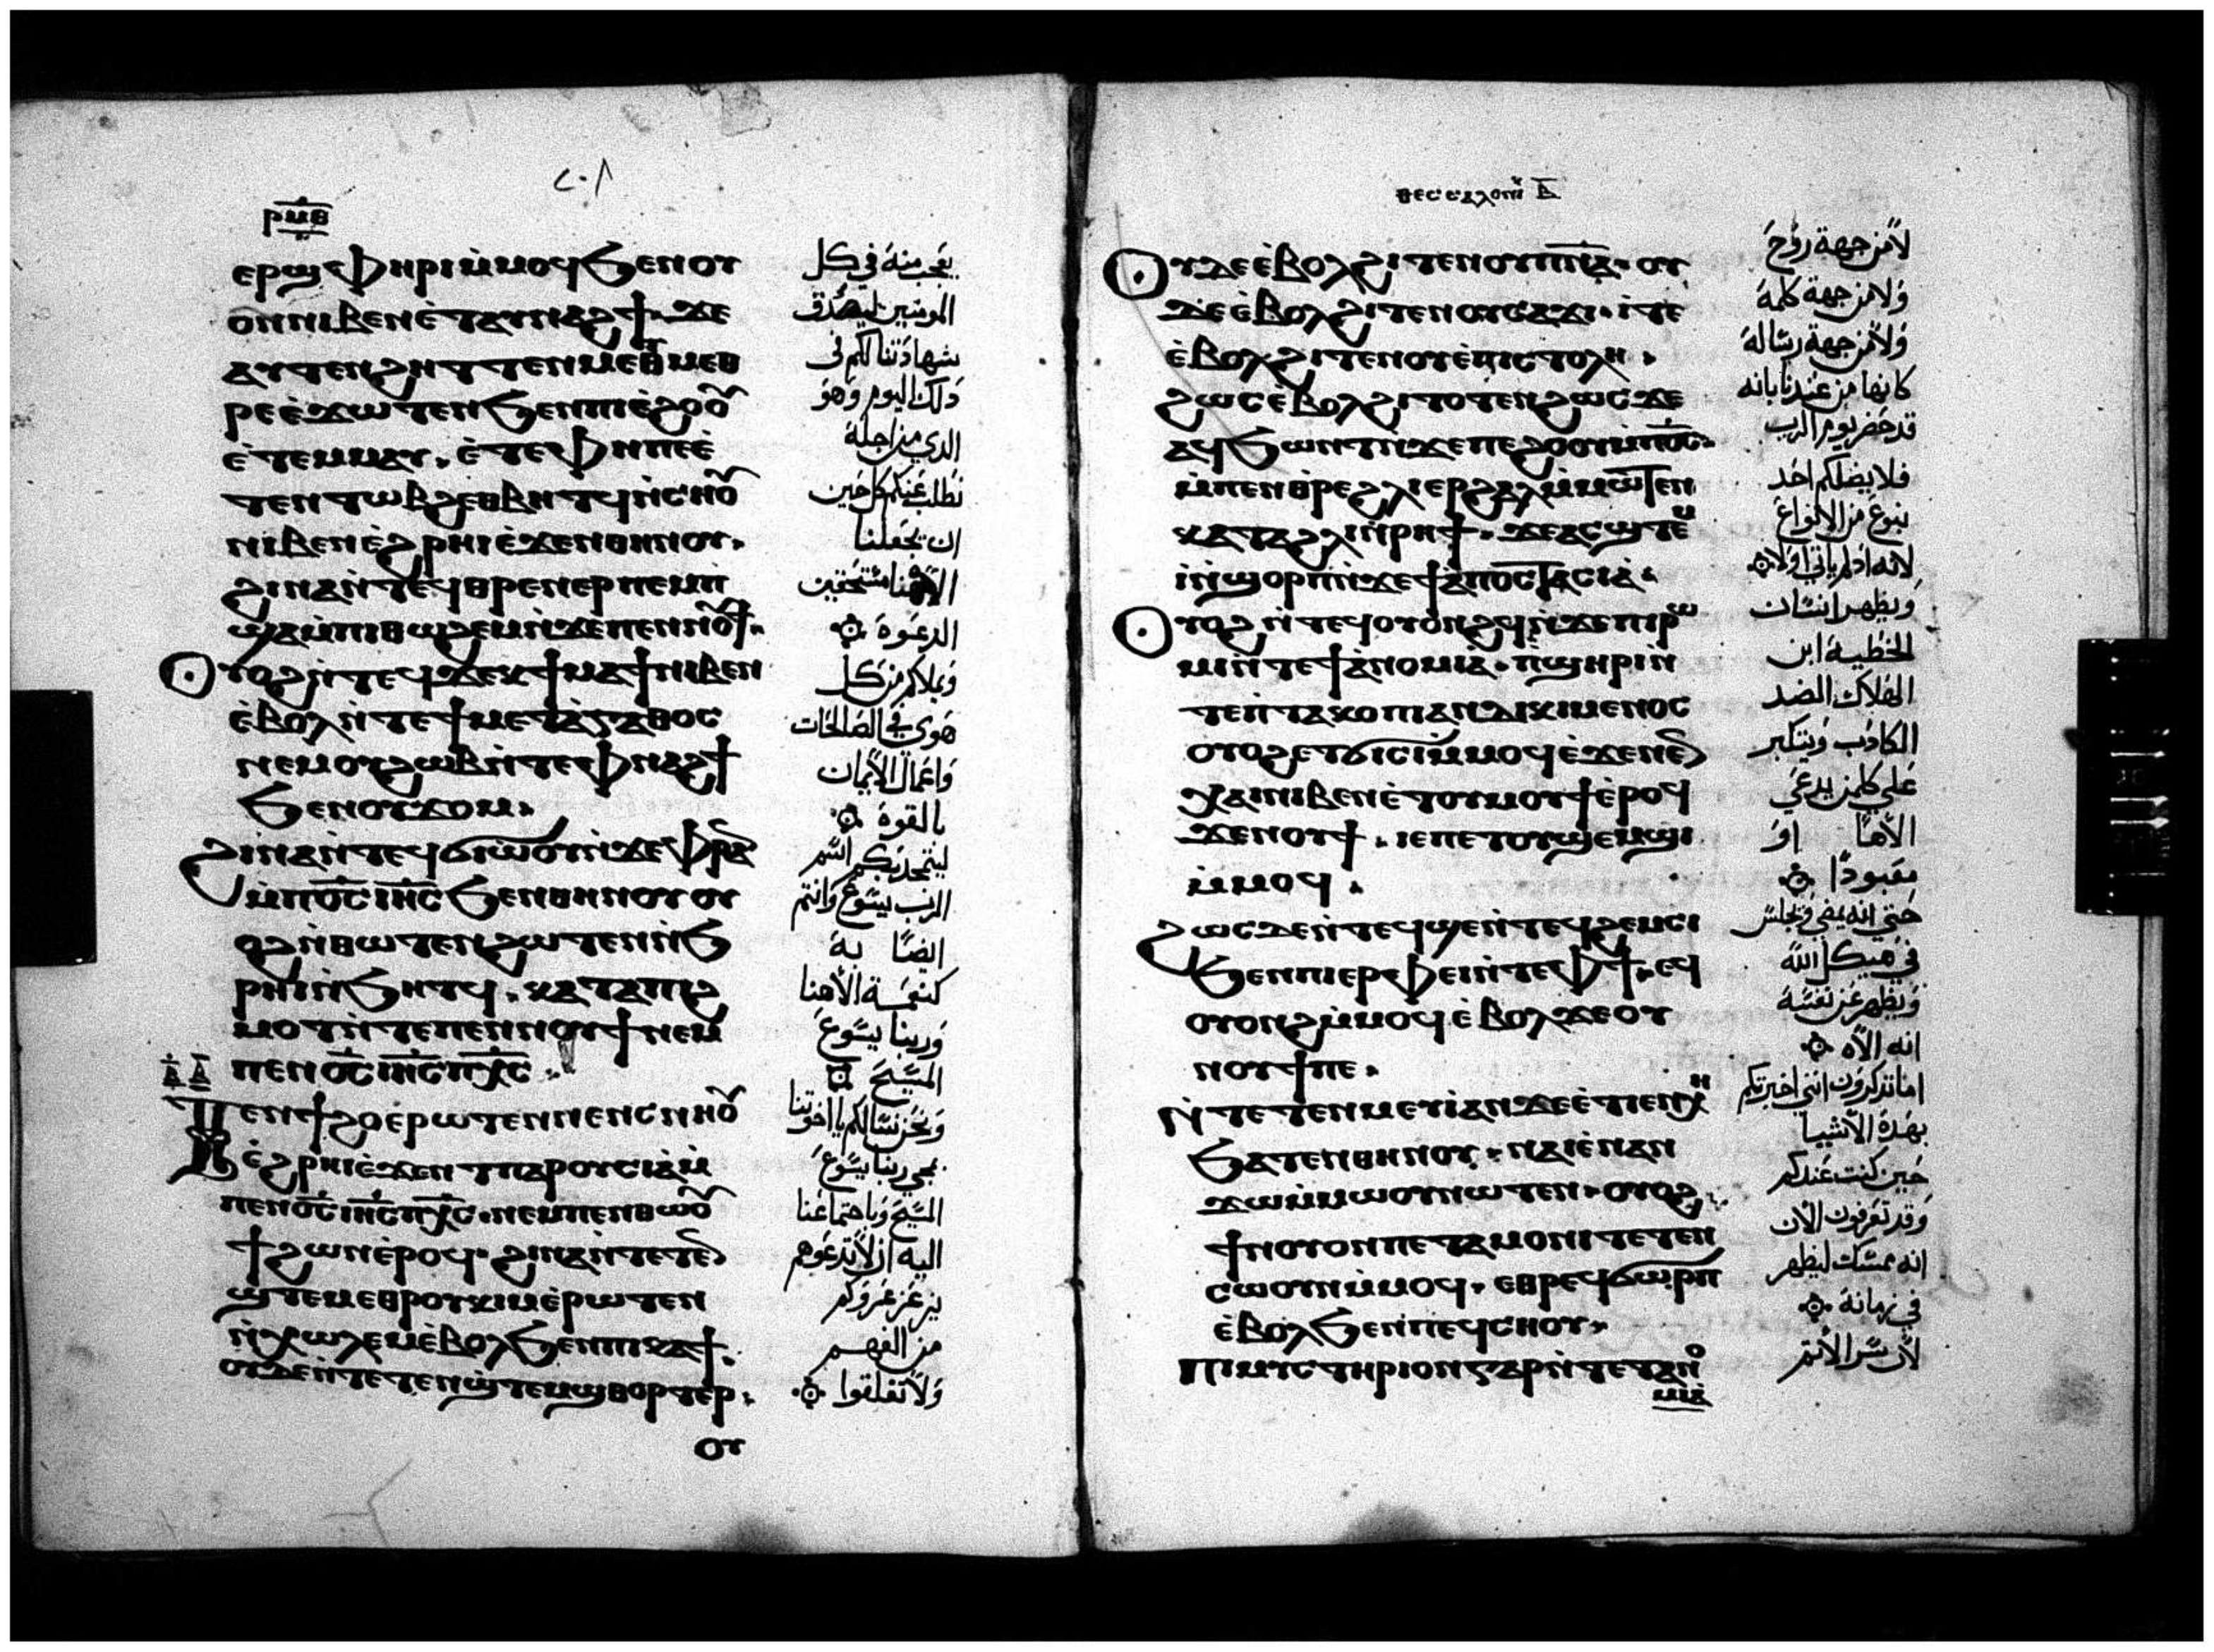 ⲣⲙⲑ
ⲉⲣϣⲫⲏⲣⲓ ⲙ̀ⲙⲟϥ ϧⲉⲛ ⲟⲩ
ⲟⲛ ⲛⲓⲃⲉⲛ ⲉ̀ⲧⲁⲩⲛⲁϩϯ. ϫⲉ
ⲁⲩⲧⲉⲛϩⲏⲧ ⲧⲉⲛⲙⲉⲑⲙⲉⲑ
ⲣⲉ ⲉ̀ϫⲱⲧⲉⲛ ϧⲉⲛ ⲡⲓⲉ̀ϩⲟⲟⲩ
ⲉ̀ⲧⲉⲙⲙⲁⲩ. ⲉ̀ⲧⲉ ⲫⲏ ⲡⲉ ⲉ̀
ⲧⲉⲛⲧⲱⲃϩ ⲉⲑⲃⲏⲧϥ ⲛ̀ⲥⲏⲟⲩ
ⲛⲓⲃⲉⲛ ⲉ̀ϩⲣⲏⲓ ⲉ̀ϫⲉⲛ ⲑⲏⲛⲟⲩ.
ϩⲓⲛⲁ ⲛ̀ⲧⲉϥⲑⲣⲉⲛⲉⲣⲡⲉⲙⲡ̀
ϣⲁ ⲙ̀ⲡⲓⲑⲱϩⲉⲙ ⲛ̀ϫⲉ ⲡⲉⲛⲛⲟⲩϯ.
ⲟⲩⲟϩ ⲛ̀ⲧⲉϥϫⲉⲕ ϯⲙⲁϯ ⲛⲓⲃⲉⲛ
ⲉ̀ⲃⲟⲗ ⲛ̀ⲧⲉ ϯⲙⲉⲧⲁ̀ⲅⲁⲑⲟⲥ
ⲛⲉⲙ ⲟⲩϩⲱⲃ ⲛ̀ⲧⲉ ⲫⲛⲁϩϯ
ϧⲉⲛ ⲟⲩϫⲟⲙ.
ϩⲓⲛⲁ ⲛ̀ⲧⲉϥϭⲓⲱⲟⲩ ⲛ̀ϫⲉ ⲫⲣⲁⲛ
ⲙ̀ⲡⲟ̅ⲥ̅ ⲓⲏ̅ⲥ̅ ϧⲉⲛ ⲑⲏⲛⲟⲩ ⲟⲩ
ⲟϩ ⲛ̀ⲑⲱⲧⲉⲛ ϩⲱⲧⲉⲛ ⲛ̀ϧ
ⲣⲏⲓ ⲛ̀ϧⲏⲧϥ. ⲕⲁⲧⲁ ⲡⲓϩ
ⲙⲟⲧ ⲛ̀ⲧⲉ ⲡⲉⲛⲛⲟⲩϯ ⲛⲉⲙ
ⲡⲉⲛⲟ̅ⲥ̅ ⲓⲏ̅ⲥ̅ ⲡⲭ̅ⲥ̅.
ⲧⲉⲛϯϩⲟ ⲉ̀ⲣⲱⲧⲉⲛ ⲛⲉⲛⲥⲛⲏⲟⲩ
ⲉ̀ϩⲣⲏⲓ ⲉ̀ϫⲉⲛ ⲧⲡⲁⲣⲟⲩⲥⲓⲁ̀ ⲙ̀
ⲡⲉⲛⲟ̅ⲥ̅ ⲓⲏ̅ⲥ̅ ⲡⲭ̅ⲥ̅. ⲛⲉⲙ ⲡⲉⲛⲑⲱⲟⲩ
ϯ ϩⲱⲛ ⲉ̀ⲣⲟϥ. ϩⲓⲛⲁ ⲛ̀ⲧⲉⲧⲉⲛ
ϣⲧⲉⲙⲉⲑⲣⲟⲩⲕⲓⲙ ⲉ̀ⲣⲱⲧⲉⲛ
ⲛ̀ⲭⲱⲗⲉⲙ ⲉ̀ⲃⲟⲗ ϧⲉⲛ ⲡⲓⲕⲁϯ.
ⲟⲩⲇⲉ ⲛ̀ⲧⲉⲧⲉⲛϣⲧⲉⲙϣⲑⲟⲣⲧⲉⲣ.
ⲟⲩ
يعجب منه في كل
المومنين ليصدق
شهادتنا لكم في
ذلك اليوم وهو
الدي من اجله
نطلب عنكم كل حين
ان يجعلنا
الاهنا مستحقين
الدعوة
ويملاكم من كل
هوى في الصالحات
واعمال الايمان
بالقوة
ليتمجد بكم اسم
الرب يسوع وانتم
ايضا به
كنعمة الاهنا
وربنا يسوع
المسيح
ونحن نسالكم يا اخوتنا
بمجي ربنا يسوع
المسيح وباجتماعنا
اليه ان لا تدعوهم
من الفهم
ولا تقلقوا
ⲑⲉⲥⲥⲁⲗⲟⲛⲓ ⲃ̅
ⲟⲩⲇⲉ ⲉ̀ⲃⲟⲗ ϩⲓⲧⲉⲛ ⲟⲩⲡ̅ⲛ̅ⲁ̅. ⲟⲩ
ⲇⲉ ⲉ̀ⲃⲟⲗ ϩⲓⲧⲉⲛ ⲟⲩⲥⲁϫⲓ. ⲓⲧⲉ
ⲉ̀ⲃⲟⲗ ϩⲓⲧⲉⲛ ⲟⲩⲉ̀ⲡⲓⲥⲧⲟⲗⲏ.
ϩⲱⲥ ⲉ̀ⲃⲟⲗ ϩⲓⲧⲟⲧⲉⲛ ϩⲱⲥ ϫⲉ
ⲁϥϧⲱⲛⲧ ⲛ̀ϫⲉ ⲡⲉϩⲟⲟⲩ ⲙ̀ⲡⲟ̅ⲥ̅.
ⲙ̀ⲡⲉⲛⲑⲣⲉ ϩⲗⲓ ⲉⲣϩⲁⲗ ⲙ̀ⲙⲱⲧⲉⲛ
ⲕⲁⲧⲁ ϩⲗⲓ ⲛ̀ⲣⲏϯ. ϫⲉ ⲁⲥϣⲧⲉⲙ
ⲓ̀ ⲛ̀ϣⲟⲣⲡ ⲛ̀ϫⲉ ϯⲁ̀ⲡⲟⲥⲧⲁⲥⲓⲁ̀.
ⲟⲩⲟϩ ⲛ̀ⲧⲉϥⲟⲩⲟⲛϩϥ ⲛ̀ϫⲉ ⲡⲓⲣⲱ
ⲙⲓ ⲛ̀ⲧⲉ ϯⲁ̀ⲛⲟⲙⲓⲁ̀. ⲡ̀ϣⲏⲣⲓ ⲛ̀
ⲧⲉ ⲡ̀ⲧⲁⲕⲟ ⲡⲓⲁⲛⲇⲓⲕⲓⲙⲉⲛⲟⲥ
ⲟⲩⲟϩ ⲉⲧϭⲓⲥⲓ ⲙ̀ⲙⲟϥ ⲉ̀ϫⲉⲛ ⲉⲛ
ⲭⲁⲓ ⲛⲓⲃⲉⲛ ⲉ̀ⲧⲟⲩⲙⲟⲩϯ ⲉ̀ⲣⲟϥ
ϫⲉ ⲛⲟⲩϯ. ⲓⲉ ⲡⲉⲧⲟⲩϣⲉⲙϣⲓ
ⲙ̀ⲙⲟϥ.
ϩⲱⲥⲇⲉ ⲛ̀ⲧⲉϥϣⲉ ⲛ̀ⲧⲉϥϩⲉⲙⲥⲓ
ϧⲉⲛ ⲡⲓⲉⲣⲫⲉⲓ ⲛ̀ⲧⲉ ⲫϯ. ⲉϥ
ⲟⲩⲟⲛϩ ⲙ̀ⲙⲟϥ ⲉ̀ⲃⲟⲗ ϫⲉ ⲟⲩ
ⲛⲟⲩϯ ⲡⲉ.
ⲛ̀ⲧⲉⲧⲉⲛⲙⲉⲩⲓ ⲁⲛ ϫⲉ ⲉ̀ⲧⲓ ⲉⲛⲭⲏ
ϧⲁⲧⲉⲛ ⲑⲏⲛⲟⲩ. ⲛⲁⲓ ⲉ̀ⲛⲁⲛ
ϫⲱ ⲙ̀ⲙⲱⲟⲩ ⲛⲱⲧⲉⲛ. ⲟⲩⲟϩ
ϯⲛⲟⲩ ⲟⲛ ⲡⲉⲧⲁⲙⲟⲛⲓ ⲧⲉⲧⲉⲛ
ⲥⲱⲟⲩⲛ ⲙ̀ⲙⲟϥ. ⲉⲑⲣⲉϥϭⲱⲣⲡ
ⲉ̀ⲃⲟⲗ ϧⲉⲛ ⲡⲉϥⲥⲏⲟⲩ.
ⲡⲓⲙⲩⲥⲧⲏⲣⲓⲟⲛ ⲅⲁⲣ ⲛ̀ⲧⲉ ⲧⲁⲛⲟ
ⲙⲓⲁ̀
لا من جهة روح
ولا من جهة كلمة
ولا من جهة رسالة
كانها من عندنا بانه
قد حضر يوم الرب
فلا يضلكم احد
بنوع من الانواع
لانه اد لم ياتي اولا
ويظهر انسان
الخطية ابن
الهلاك الضد
الكادب ويتكبر
على كلمن يدعي
الاها او
معبودا
حتى انه يمضي ويجلس
في هيكل الله
ويظهر عن نفسه
انه الاه
اما تذكرون انني اخبرتكم
بهذه الاشيا
حين كنت عندكم
وقد تعرفون الان
انه يمسك ليظهر
في زمانه
لان سر الاتم